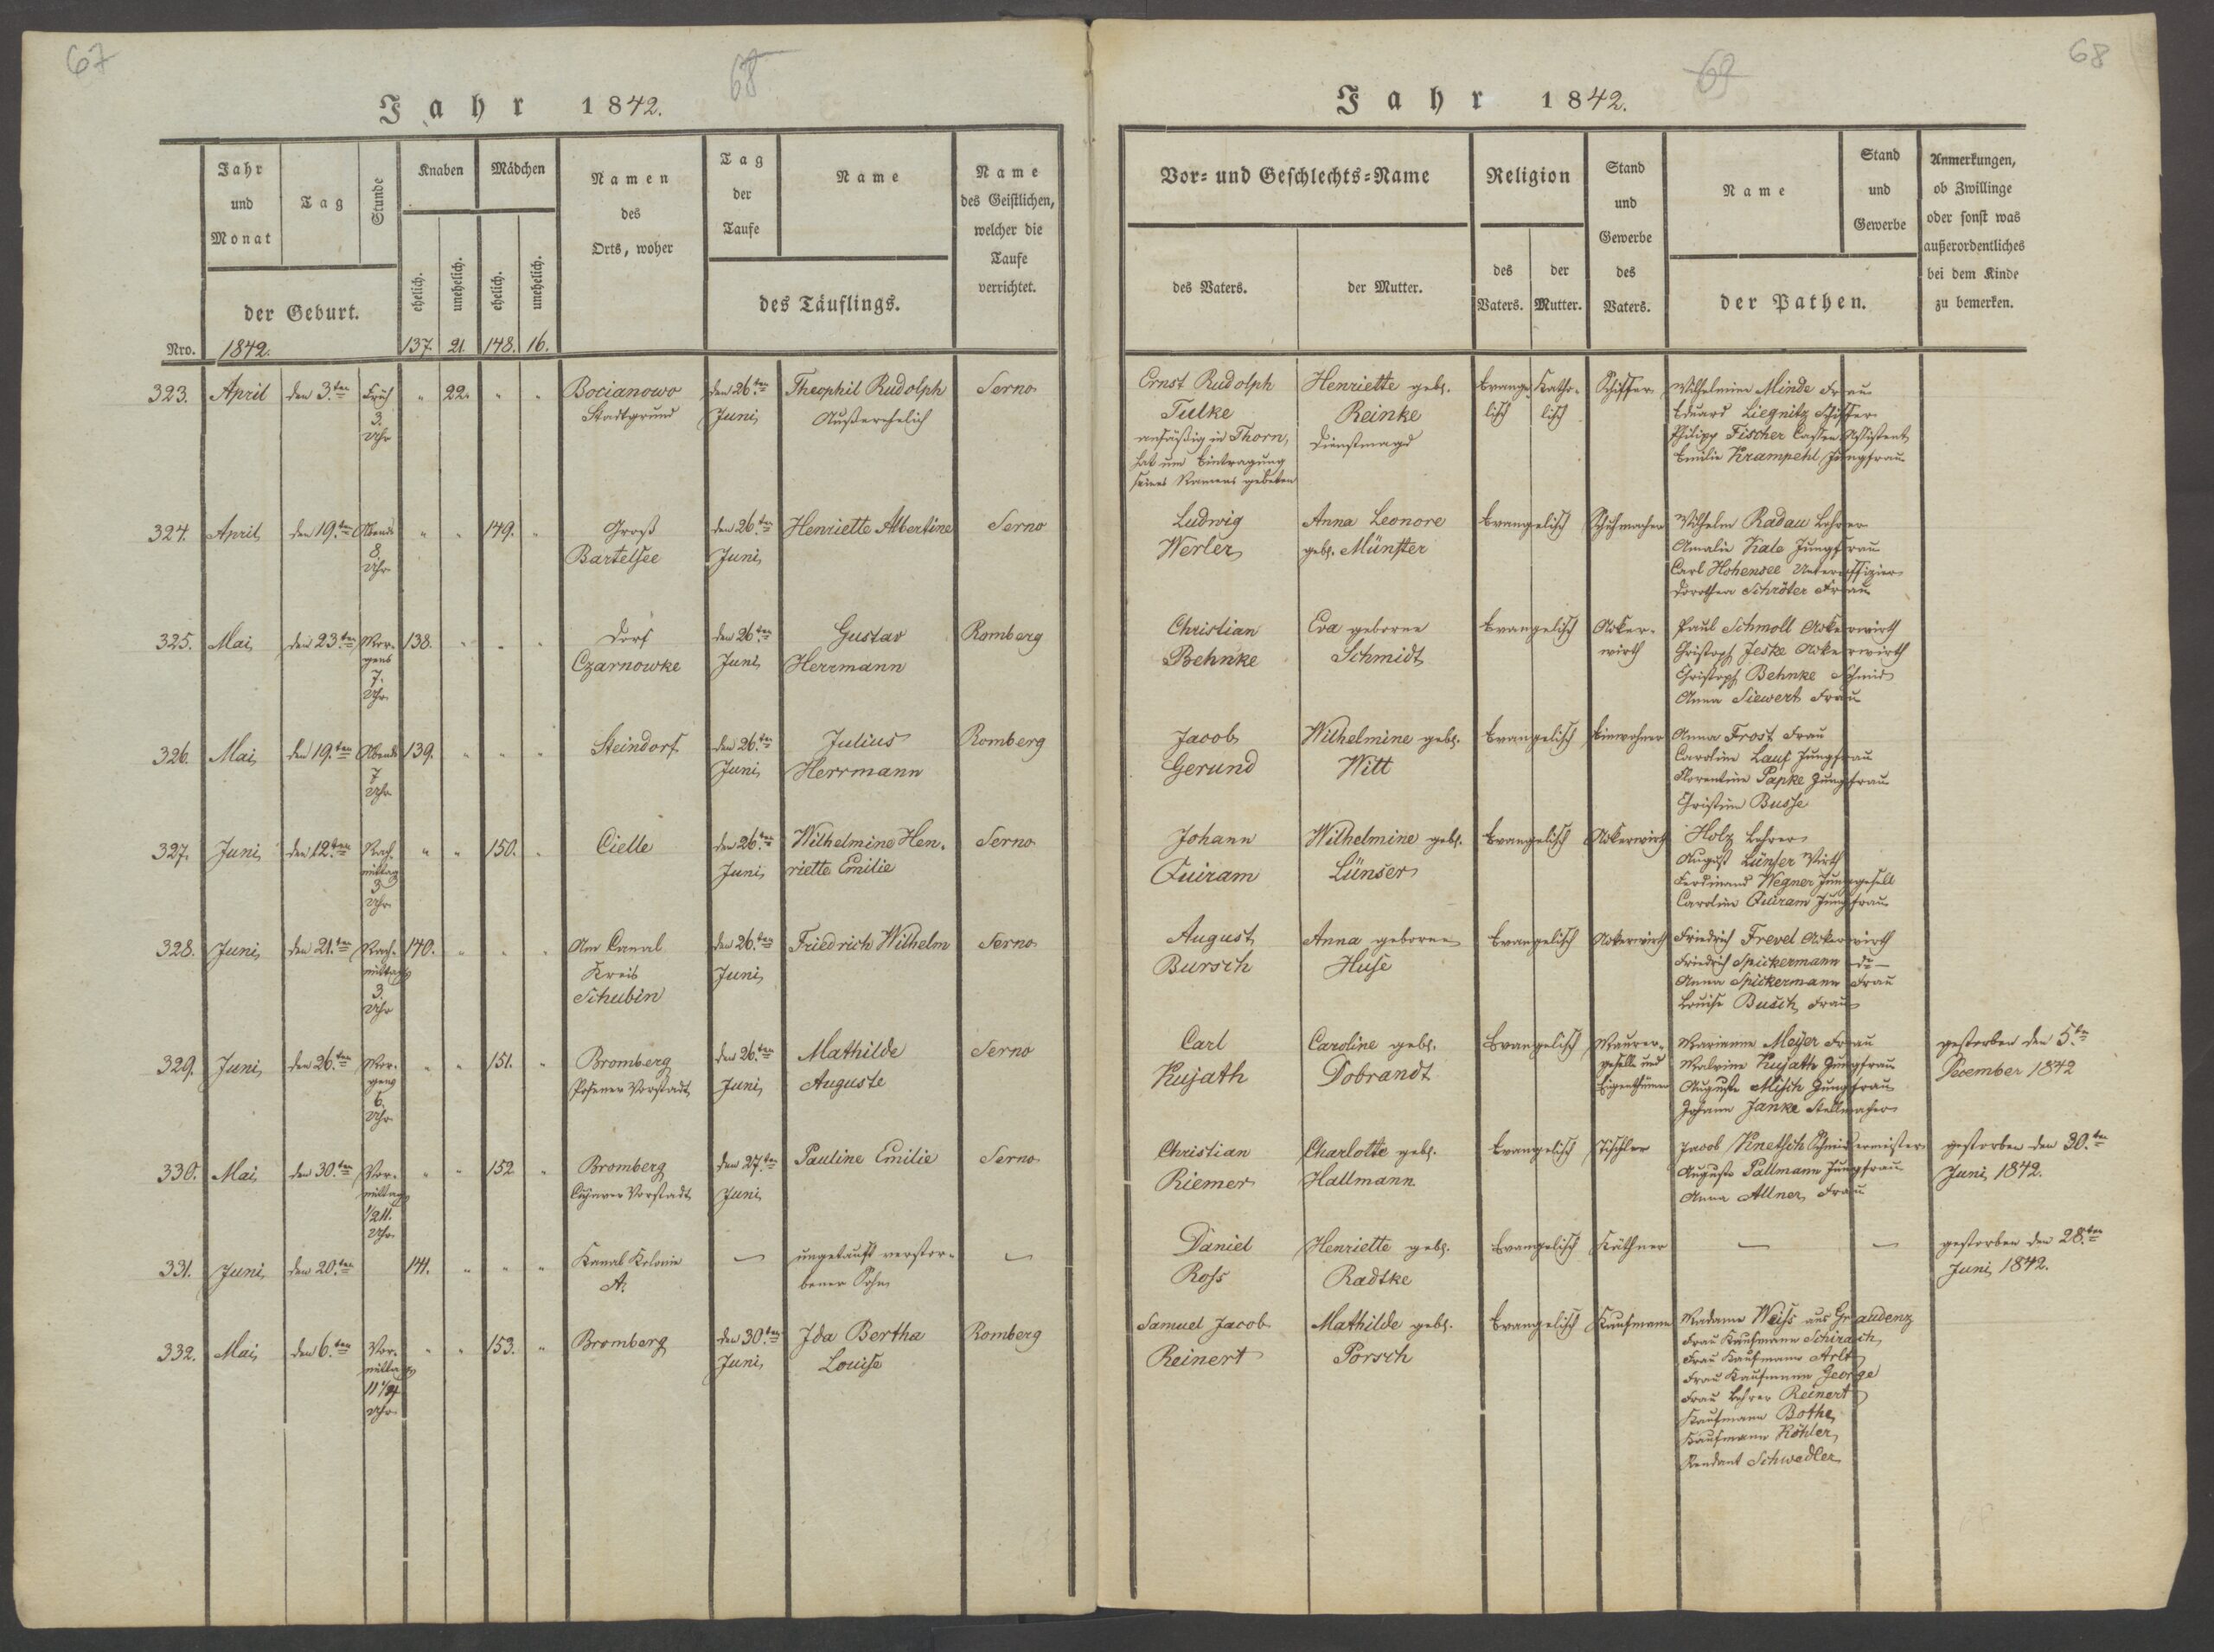 67
68
Jahr 1842.
Nro.
Jahr und Monat
Tag
Stunde
der Geburt.
Knaben
Mädchen
ehelich.
unehelich.
ehelich.
unehelich.
Namen des Orts, woher
Tag der Taufe
Name
des Täuflings.
Name des Geistlichen, welcher die Taufe verrichtet.
1842. 137. 21. 148. 16.
323. April den 3.ten Früh 3. Uhr " 22. " " Bocianowo Stadtgrund den 26.ten Juni Theophil Rudolph Außerehelich Serno
324. April den 19.ten Abends 8. Uhr " " 149. " Groß Bartelsee den 26.ten Juni Henriette Albertine Serno
325. Mai den 23.ten Morgens 7. Uhr 138. " " " Dorf Czarnowke den 26.ten Juni Gustav Herrmann Romberg
326. Mai den 19.ten Abends 7 Uhr 139. " " " Steindorf den 26.ten Juni Julius Herrmann Romberg
327. Juni den 12.ten Nachmittag 3 Uhr " " 150. " Cielle den 26.ten Juni Wilhelmine Henriette Emilie Serno
328. Juni den 21.ten Nachmittag 3. Uhr 140. " " " Am Canal Kreis Schubin den 26.ten Juni Friedrich Wilhelm Serno
329. Juni den 26.ten Morgens 6. Uhr " " 151. " Bromberg Posener Vorstadt den 26.ten Juni Mathilde Auguste Serno
330. Mai den 30.ten Vormittag 1/2 11. Uhr " " 152 " Bromberg Cujaver Vorstadt den 27.ten Juni Pauline Emilie Serno
331. Juni den 20.ten 141. " " " Kanal Kolonie A. — ungetauft verstorbener Sohn —
332. Mai den 6.ten Vormittags 11 1/4 Uhr " " 153. " Bromberg den 30.ten Juni Ida Bertha Louise Romberg
69
68
Jahr 1842.
Vor- und Geschlechts-Name
des Vaters.
der Mutter.
Religion
des Vaters.
der Mutter.
Stand und Gewerbe des Vaters.
Name
Stand und Gewerbe
der Pathen.
Anmerkungen, ob Zwillinge oder sonst was außerordentliches bei dem Kinde zu bemerken.
Ernst Rudolph Tulke ansäßig in Thorn, hat um Eintragung seines Namens gebeten
Henriette geb. Reinke Dienstmagd
Evangelisch Katholisch Schiffer
Wilhelmine Minde Frau
Eduard Liegnitz Schiffer
Philipp Fischer Cassen Assistent
Emilie Krampehl Jungfrau
Ludwig Werler
Anna Leonore geb. Münster
Evangelisch Schuhmacher
Wilhelm Radau Lehrer
Amalie Kale Jungfrau
Carl Hohensee Unteroffizier
Dorothea Schröter Frau
Christian Behnke
Eva geborne Schmidt
Evangelisch Ackerwirth
Paul Schmoll Ackerwirth
Christoph Jeske Ackerwirth
Christoph Behnke Schmid
Anna Siewert Frau
Jacob Gerund
Wilhelmine geb. Witt
Evangelisch Einwohner
Anna Frost Frau
Caroline Lauf Jungfrau
Florentine Papke Jungfrau
Christine Busse
Johann Quiram
Wilhelmine geb. Lünser
Evangelisch Ackerwirth
Holz Lehrer
August Lünser Wirth
Ferdinand Wegner Junggesell
Caroline Quiram Jungfrau
August Bursch
Anna geborne Huse
Evangelisch Ackerwirth
Friedrich Frevel Ackerwirth
Friedrich Spickermann do
Anna Spickermann Frau
Louise Busch Frau
Carl Kujath
Caroline geb. Dobrandt
Evangelisch Maurergeselle und Eigenthümer
Marianne Meyer Frau
Malvine Kujath Jungfrau
Auguste Misch Jungfrau
Johann Janke Stellmacher
gestorben den 5.ten December 1842
Christian Riemer
Charlotte geb. Hallmann
Evangelisch Tischler
Jacob Knetsch Schneidermeister
Auguste Pallmann Jungfrau
Anna Allner Frau
gestorben den 30.ten Juni 1842.
Daniel Ross
Henriette geb. Radtke
Evangelisch Käthner — —
gestorben den 28.ten Juni 1842.
Samuel Jacob Reinert
Mathilde geb. Porsch
Evangelisch Kaufmann
Madame Weiss aus Graudenz
Frau Kaufmann Schirach
Frau Kaufmann Arlt
Frau Kaufmann George
Frau Lehrer Reinert
Kaufmann Bothe
Kaufmann Köhler
Rendant Schwedler